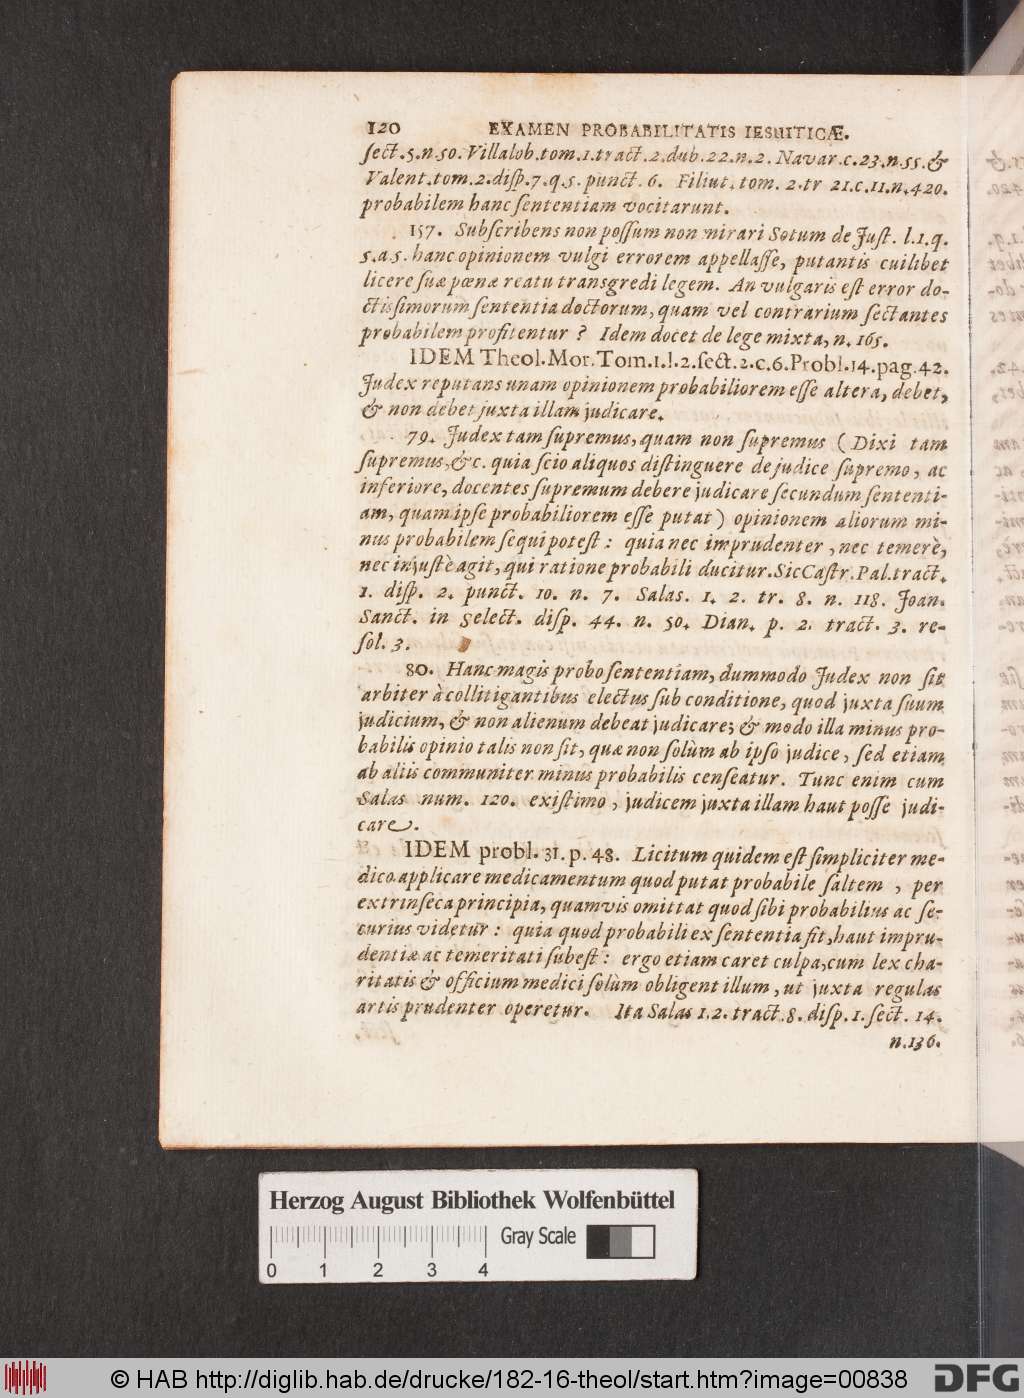 120 EXAMEN PROBABILITATIS IESUITICÆ.
sect.5.n.50. Villalob.tom.1.tract.2.dub.22.n.2. Navar.c.23.n.55.&
Valent.tom.2.disp.7.q.5. punct.6. Filiut.tom. 2.tr 21.c.11.n.420.
probabilem hanc sententiam vocitarunt.
157. Subscribens non possum non mirari Sotum de Just. l.1.q.
5.a.5. hanc opinionem vulgi errorem appellasse, putantis cuilibet
licere suæ pœnæ reatu transgredi legem. An vulgaris est error do-
ctissimorum sententia doctorum, quam vel contrarium sectantes
probabilem profitentur ? Idem docet de lege mixta, n. 165.
IDEM Theol.Mor.Tom.1.l.2.sect.2.c.6.Probl.14.pag.42.
Judex reputans unam opinionem probabiliorem esse altera, debet,
& non debet juxta illam judicare.
79. Judex tam supremus, quam non supremus ( Dixi tam
supremus, &c. quia scio aliquos distinguere de judice supremo, ac
inferiore, docentes supremum debere judicare secundum sententi-
am, quam ipse probabiliorem esse putat ) opinionem aliorum mi-
nus probabilem sequi potest : quia nec imprudenter, nec temerè,
nec injustè agit, qui ratione probabili ducitur. Sic Castr.Pal.tract.
1. disp. 2. punct. 10. n. 7. Salas. 1. 2. tr. 8. n. 118. Joan.
Sanct. in Select. disp. 44. n. 50. Dian. p. 2. tract. 3. re-
sol. 3.
80. Hanc magis probo sententiam, dummodo Judex non sit
arbiter à collitigantibus electus sub conditione, quod juxta suum
judicium, & non alienum debeat judicare; & modo illa minus pro-
babilis opinio talis non sit, quæ non solùm ab ipso judice, sed etiam
ab aliis communiter minus probabilis censeatur. Tunc enim cum
Salas num. 120. existimo, judicem juxta illam haut posse judi-
care.
IDEM probl. 31. p. 48. Licitum quidem est simpliciter me-
dico applicare medicamentum quod putat probabile saltem , per
extrinseca principia, quamvis omittat quod sibi probabilius ac se-
curius videtur : quia quod probabili ex sententia fit, haut impru-
dentiæ ac temeritati subest : ergo etiam caret culpa, cum lex cha-
ritatis & officium medici solùm obligent illum, ut juxta regulas
artis prudenter operetur. Ita Salas 1.2. tract.8. disp.1. sect. 14.
n.136.
Herzog August Bibliothek Wolfenbüttel
Gray Scale
0 1 2 3 4
© HAB http://diglib.hab.de/drucke/182-16-theol/start.htm?image=00838
DFG